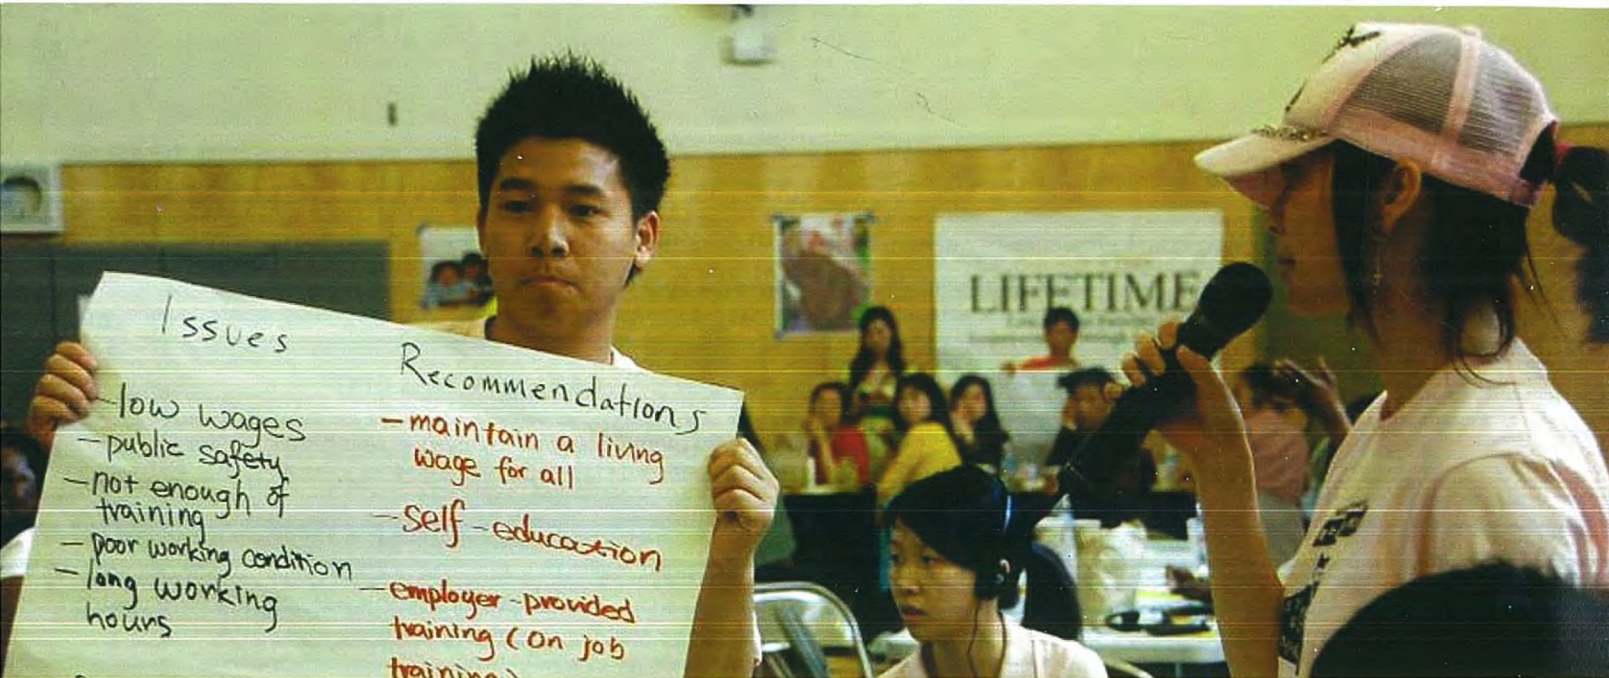 Issues
- low wages
- public safety
- not enough of
training
- poor working condition
- long working
hours
Recommendations
- maintain a living
wage for all
- self-education
- employer-provided
training (on job
training)
LIFETIME